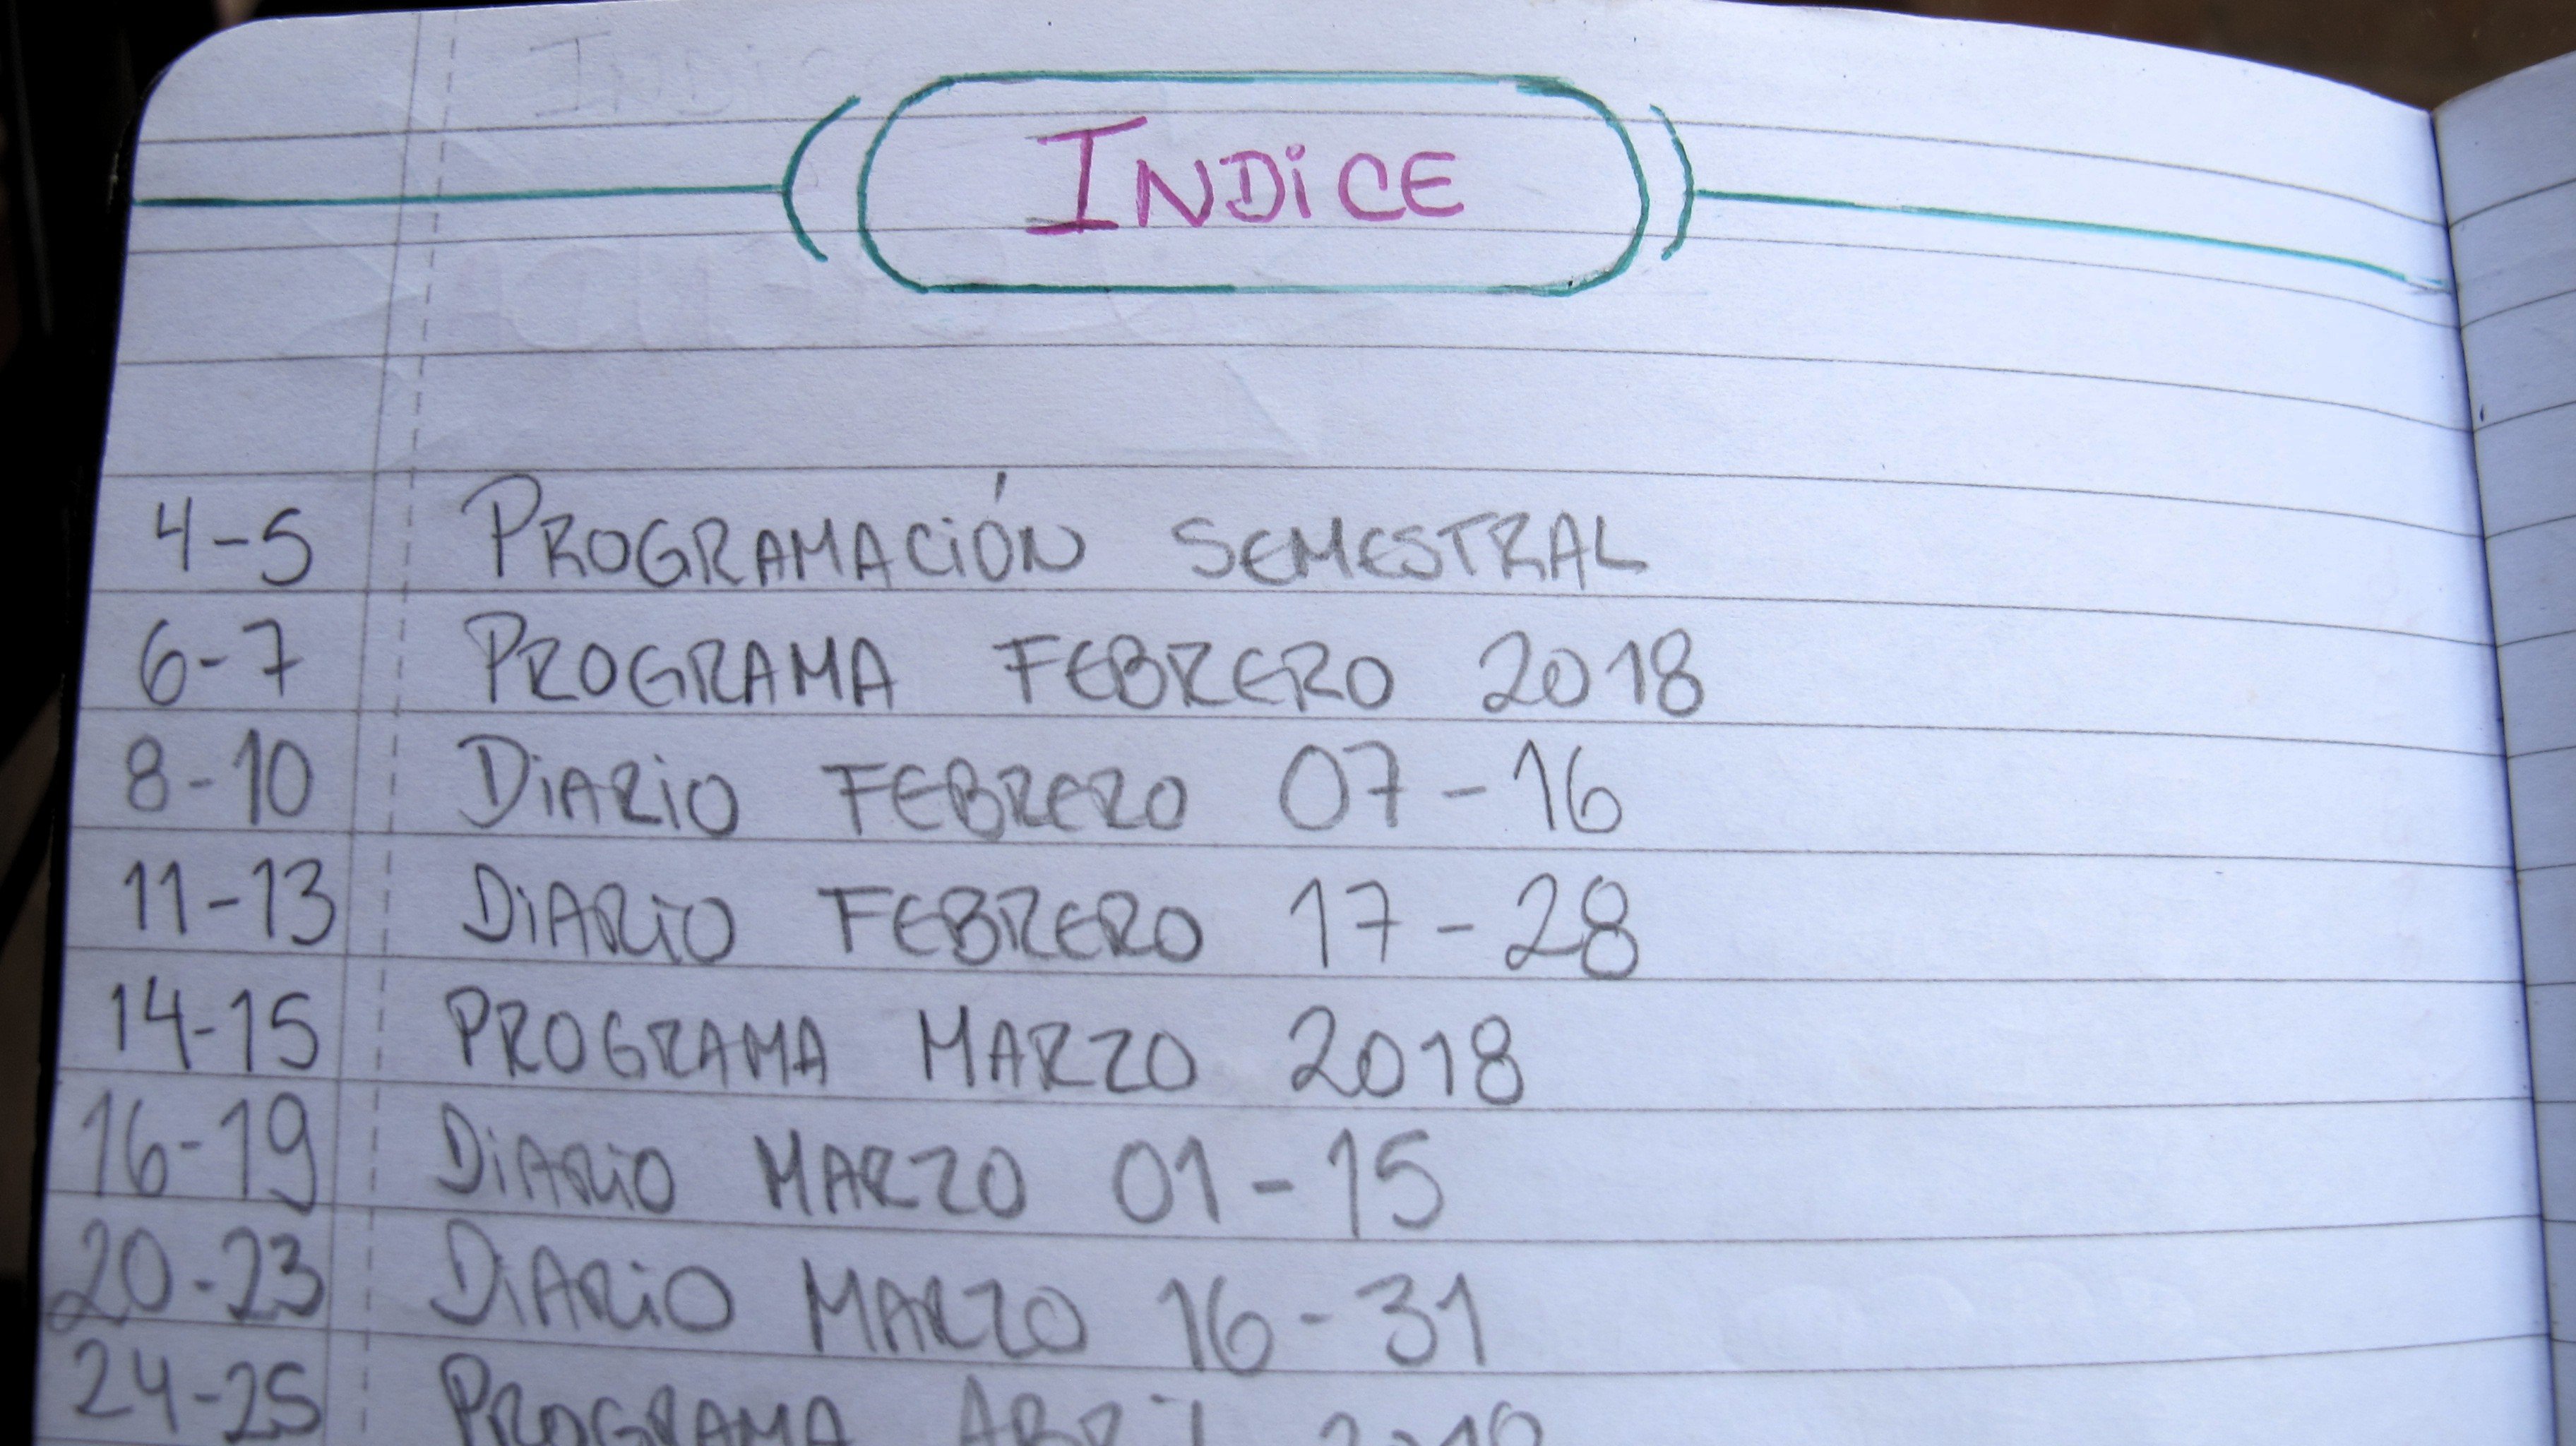 INDiCE
4-5 PROGRAMACiÓN SEMESTRAL
6-7 PROGRAMA FEBRERO 2018
8-10 DiARiO FEBRERO 07-16
11-13 DiARiO FEBRERO 17-28
14-15 PROGRAMA MARZO 2018
16-19 DiARiO MARZO 01-15
20-23 DiARiO MARZO 16-31
24-25 PROGRAMA ABRiL 2018